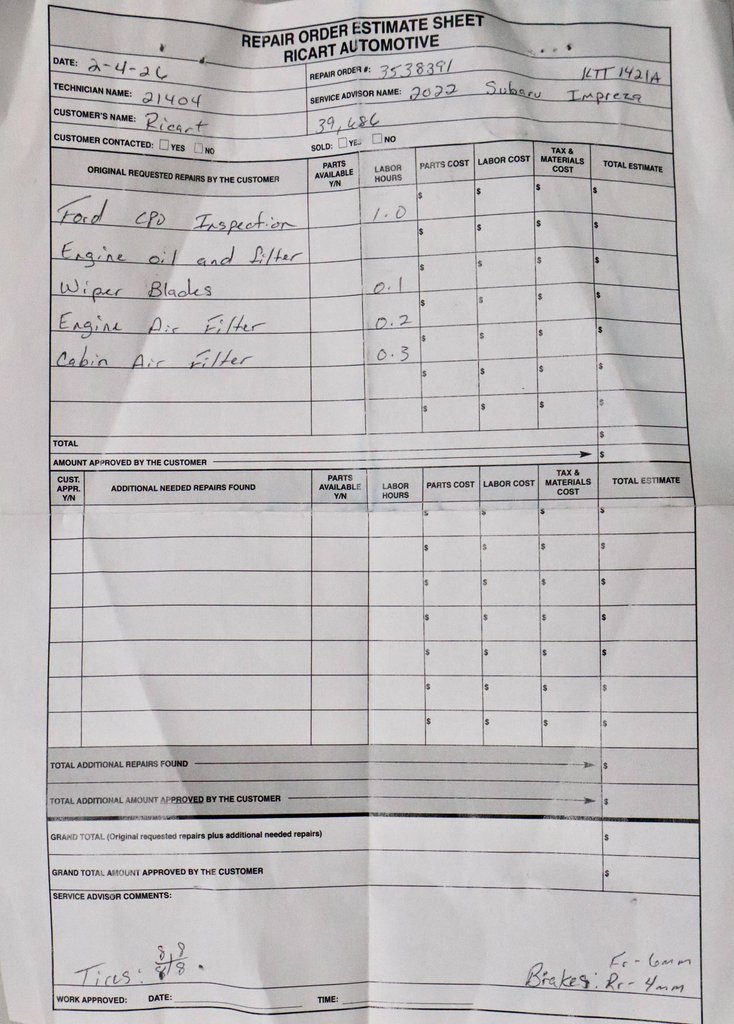 REPAIR ORDER ESTIMATE SHEET
RICART AUTOMOTIVE
DATE: 2-4-26
REPAIR ORDER #: 3538391 KTT 1421A
TECHNICIAN NAME: 21404
SERVICE ADVISOR NAME: 2022 Subaru Impreza
CUSTOMER'S NAME: Ricart
39,686
CUSTOMER CONTACTED: YES NO
SOLD: YES NO
ORIGINAL REQUESTED REPAIRS BY THE CUSTOMER PARTS AVAILABLE Y/N LABOR HOURS PARTS COST LABOR COST TAX & MATERIALS COST TOTAL ESTIMATE
$ $ $ $
Ford CPO Inspection 1.0
$ $ $ $
Engine oil and filter
$ $ $ $
Wiper Blades 0.1
$ $ $ $
Engine Air Filter 0.2
$ $ $ $
Cabin Air Filter 0.3
$ $ $ $
$ $ $ $
TOTAL $
AMOUNT APPROVED BY THE CUSTOMER $
CUST. APPR. Y/N ADDITIONAL NEEDED REPAIRS FOUND PARTS AVAILABLE Y/N LABOR HOURS PARTS COST LABOR COST TAX & MATERIALS COST TOTAL ESTIMATE
$ $ $ $
$ $ $ $
$ $ $ $
$ $ $ $
$ $ $ $
$ $ $ $
$ $ $ $
TOTAL ADDITIONAL REPAIRS FOUND $
TOTAL ADDITIONAL AMOUNT APPROVED BY THE CUSTOMER $
GRAND TOTAL (Original requested repairs plus additional needed repairs) $
GRAND TOTAL AMOUNT APPROVED BY THE CUSTOMER $
SERVICE ADVISOR COMMENTS:
Tires: 8 8
8 8
Brakes: Fr - 6mm
Rr - 4mm
WORK APPROVED: DATE: TIME: